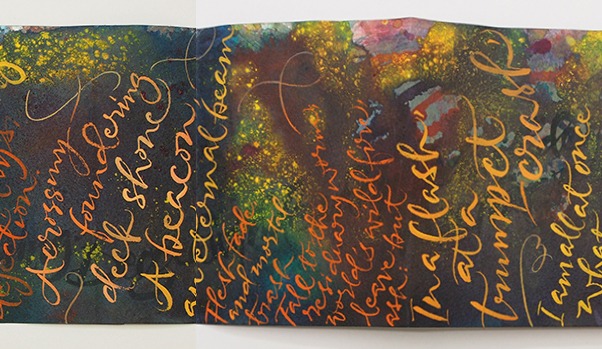 jection
Across my
foundering
deck shone
A beacon,
an eternal beam
Flesh fade
and mortal
trash
Fall to the
residuary worm
world's wildfire,
leave but
ash:
In a flash,
at a
trumpet
crash,
I am all at once
what